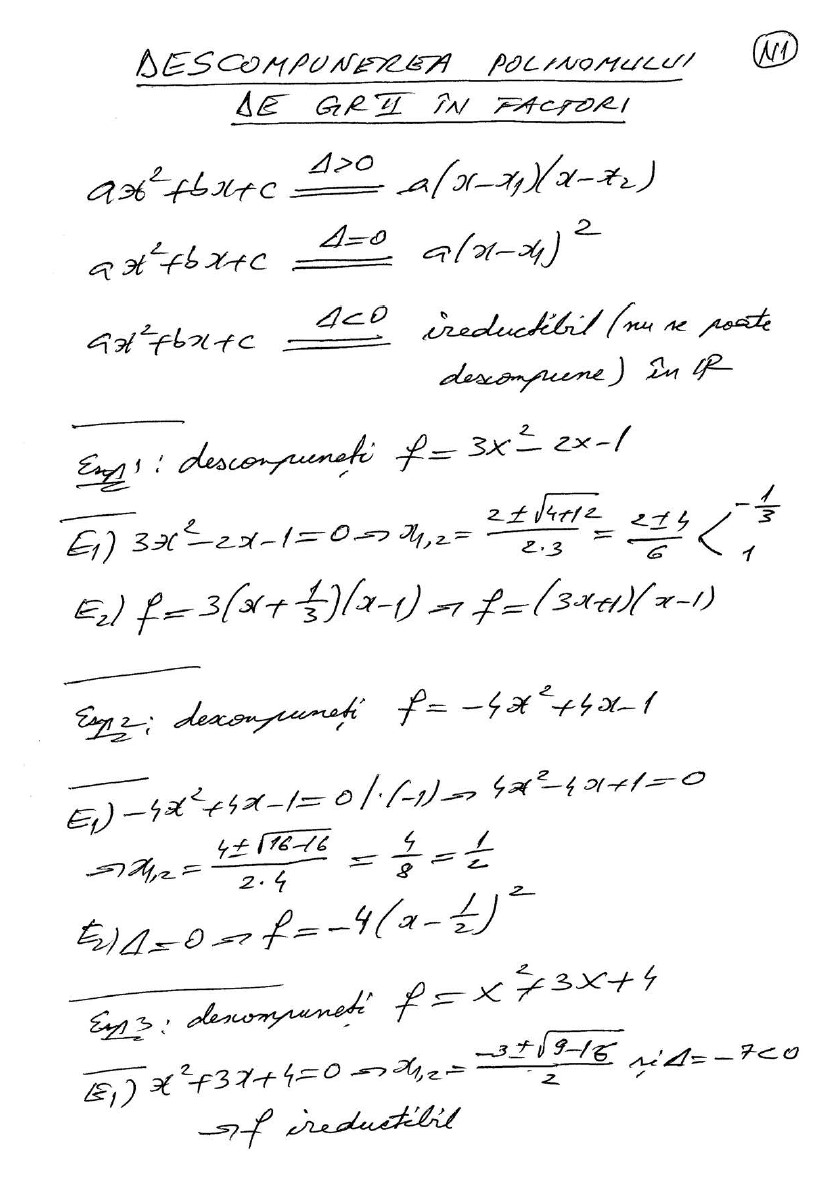 N1
DESCOMPUNEREA POLINOMULUI
DE GR II ÎN FACTORI
ax²+bx+c =(Δ>0)= a(x-x₁)(x-x₂)
ax²+bx+c =(Δ=0)= a(x-x₁)²
ax²+bx+c =(Δ<0)= ireductibil (nu se poate
descompune) în ℝ
Exp 1: descompuneți f = 3x²-2x-1
E₁) 3x²-2x-1=0 ⇒ x₁,₂ = (2±√(4+12))/(2·3) = (2±4)/6 < -1/3
1
E₂) f = 3(x+1/3)(x-1) ⇒ f = (3x+1)(x-1)
Exp 2: descompuneți f = -4x²+4x-1
E₁) -4x²+4x-1=0 /·(-1) ⇒ 4x²-4x+1=0
⇒ x₁,₂ = (4±√(16-16))/(2·4) = 4/8 = 1/2
E₂) Δ=0 ⇒ f = -4(x-1/2)²
Exp 3: descompuneți f = x²+3x+4
E₁) x²+3x+4=0 ⇒ x₁,₂ = (-3±√(9-16))/2 și Δ=-7<0
⇒ f ireductibil